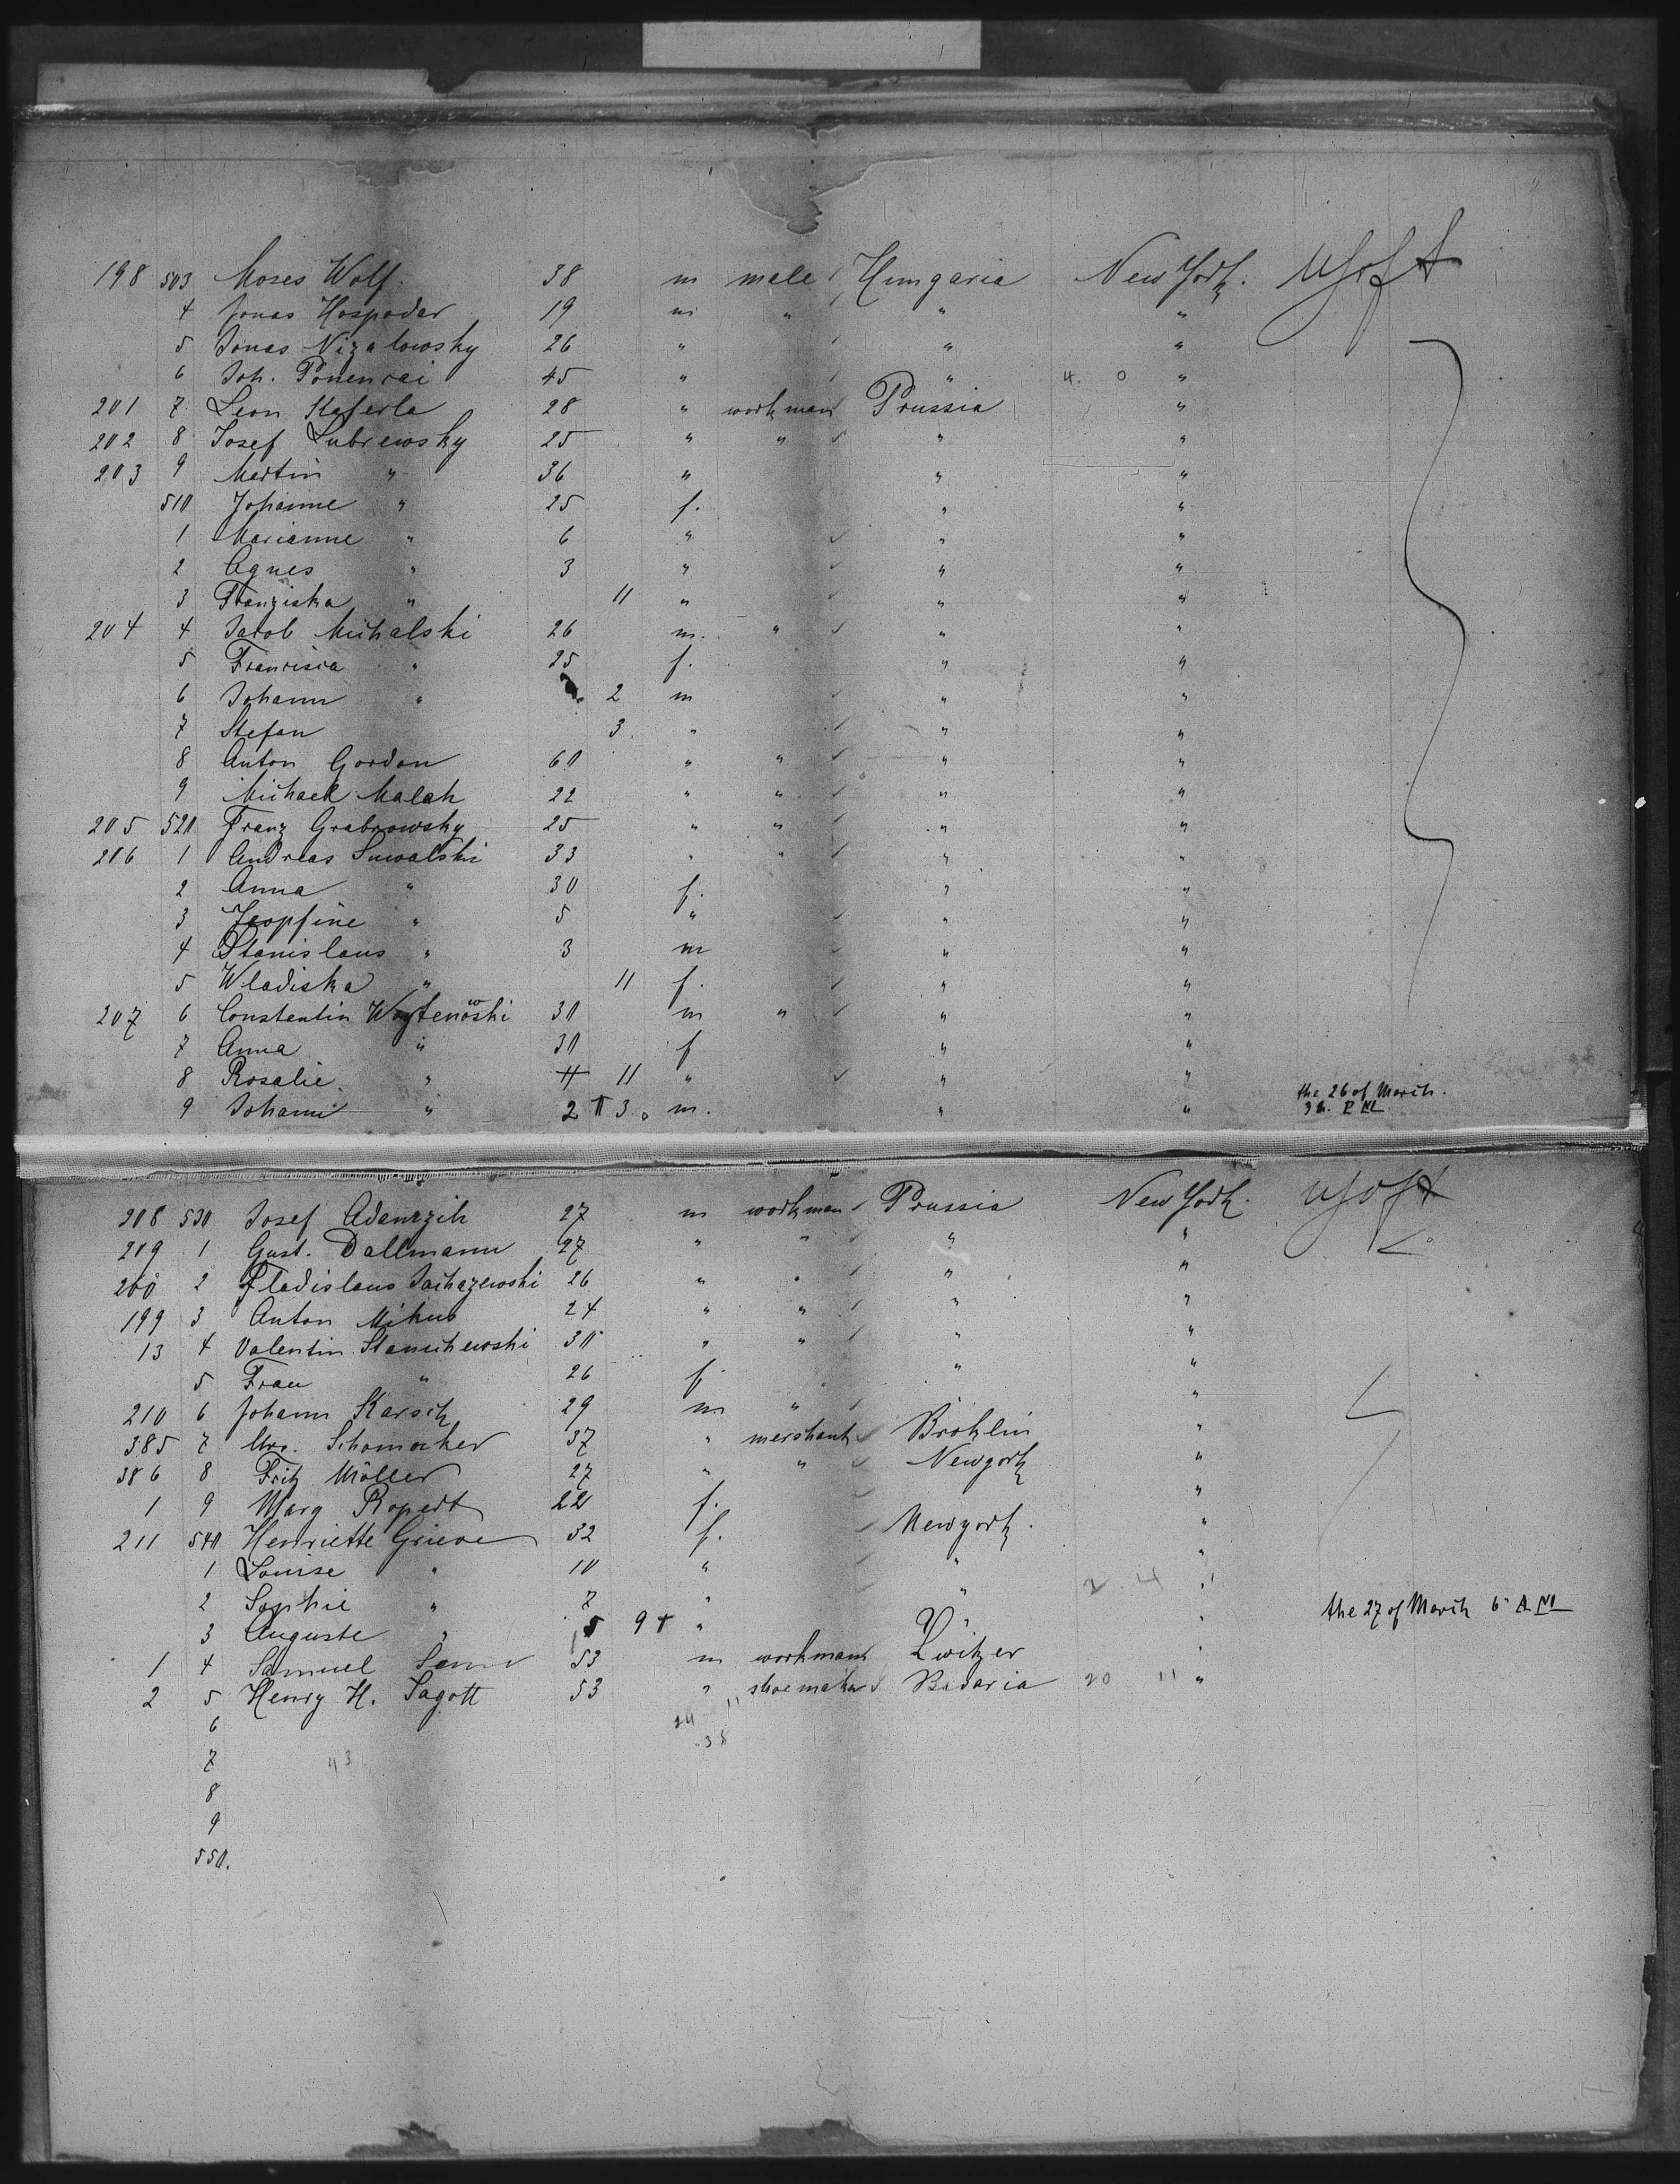 198 503 Moses Wolf 38 m male Hungaria New York.
4 Jonas Hospodar 19 m " " "
5 Jonas Nizalowsky 26 " " "
6 Joh. 45 " " 4. 0 "
201 7 Leon Kaferla 28 " workman Prussia "
202 8 Josef Lubrewsky 25 " " " "
203 9 Martin " 36 " " "
510 Johanne " 25 f. " "
1 Marianne " 6 " " "
2 Agnes " 3 " " "
3 Franziska " 11 " " "
204 4 Jacob Michalski 26 m. " " "
5 Francisca " 25 f. " "
6 Johann " 2 m " "
7 Stefan 3 " " "
8 Anton Gordon 60 " " " "
9 Michael Malak 22 " " " "
205 520 Franz Grabrowsky 25 " " " "
206 1 Andreas Suwalski 33 " " " "
2 Anna " 30 f. " "
3 " 5 " " "
4 Stanislaus " 3 m " "
5 Wladiska " 11 f. " "
207 6 Constentin 30 m " " "
7 Anna " 30 f " "
8 Rosalie " 11 " " "
9 Johann " 2 3 m. " "
the 26 of March.
3 h. P M
208 530 Josef Adamzik 27 m workman Prussia New York.
209 1 Gust. Dallmann 27 " " " "
200 2 26 " " " "
199 3 Anton Mikus 24 " " " "
13 4 Valentin 30 " " " "
5 Frau " 26 f. " "
210 6 Johann Karsch 29 m " "
385 7 Schomacker 37 " merchant Broklin "
386 8 Fritz Möller 27 " " Newyork "
1 9 Marg Ropert 22 f. "
211 540 Henriette Grieve 32 f. Newyork. "
1 Louise " 10 " " "
2 Sophie " 7 " " 2 4 "
3 Auguste " 9 " " "
the 27 of March 6 A M
1 4 Samuel 53 m workman "
2 5 Henry H. Sagott 53 " shoemaker Bavaria 20 11 "
6
7 43
8
9
550.